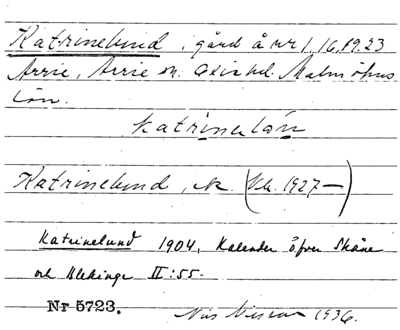 Katrinelund, gård å nr 1, 16, 19. 23
Arrie, Arrie sn. Oxie hd. Malmöhus
län.
Katrinelund, sk. (V.k. 1927—)
Katrinelund 1904, Kalender öfver Skåne
och Blekinge II:55.
Nr 5723. 1936.